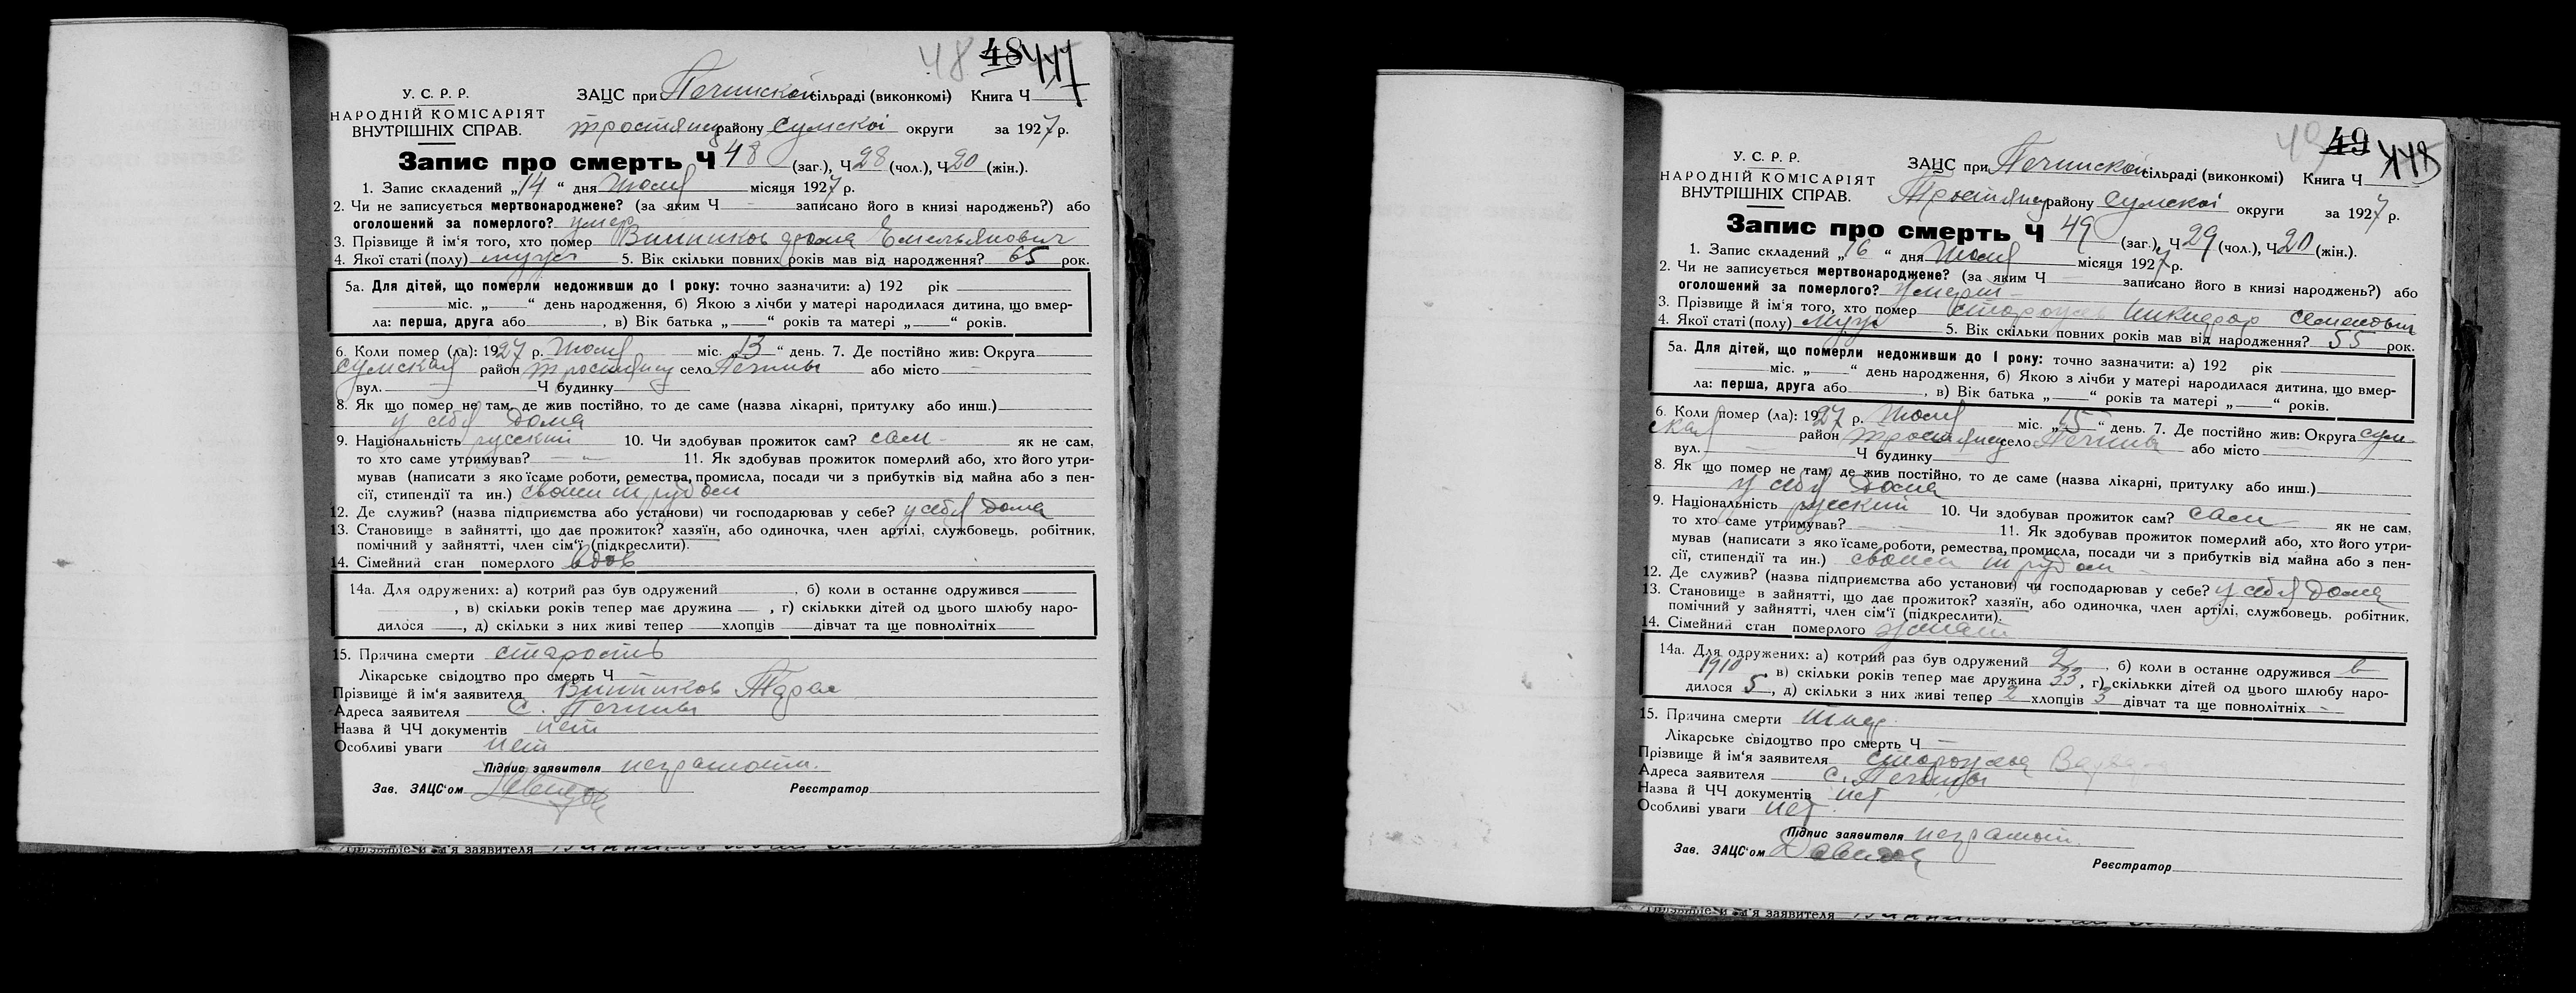 48 48 447
У. С. Р. Р.
НАРОДНІЙ КОМІСАРІЯТ
ВНУТРІШНІХ СПРАВ.
ЗАЦС при Печинской сільраді (виконкомі) Книга Ч
тростянец району сумскоі округи за 1927 р.
Запис про смерть Ч 48 (заг.), Ч 28 (чол.), Ч 20 (жін.).
1. Запис складений „14“ дня Июля місяця 1927 р.
2. Чи не записується мертвонароджене? (за яким Ч записано його в книзі народжень?) або
оголошений за померлого? умер
3. Прізвище й ім‘я того, хто помер Винников фома Емельянович
4. Якої статі (полу) муж 5. Вік скільки повних років мав від народження? 65 рок.
5а. Для дітей, що померли недоживши до 1 року: точно зазначити: а) 192 рік
міс. „ “ день народження, б) Якою з лічби у матері народилася дитина, що вмер-
ла: перша, друга або , в) Вік батька „ “ років та матері „ “ років.
6. Коли помер (ла): 1927 р. Июля міс. „13“ день. 7. Де постійно жив: Округа
сумская район тростянец село Печины або місто -
вул. Ч будинку
8. Як що помер не там, де жив постійно, то де саме (назва лікарні, притулку або инш.)
у себя дома
9. Національність русский 10. Чи здобував прожиток сам? сам - як не сам,
то хто саме утримував? - 11. Як здобував прожиток померлий або, хто його утри-
мував (написати з якоїсаме роботи, ремества, промисла, посади чи з прибутків від майна або з пен-
сії, стипендії та ин.) своим трудом
12. Де служив? (назва підприємства або установи) чи господарював у себе? у себя дома
13. Становище в зайнятті, що дає прожиток? хазяїн, або одиночка, член артілі, службовець, робітник,
помічний у зайнятті, член сім‘ї (підкреслити).
14. Сімейний стан померлого вдов
14а. Для одружених: а) котрий раз був одружений , б) коли в останнє одружився
, в) скільки років тепер має дружина , г) скількки дітей од цього шлюбу наро-
дилося , д) скільки з них живі тепер хлопців дівчат та ще повнолітніх
15. Причина смерти старость
Лікарське свідоцтво про смерть Ч
Прізвище й ім‘я заявителя Винников
Адреса заявителя С. Печины
Назва й ЧЧ документів нет
Особливі уваги нет
Підпис заявителя неграмотн.
Зав. ЗАЦС‘ом Реєстратор
Прізвище й ім‘я заявителя
49 49 448
У. С. Р. Р.
НАРОДНІЙ КОМІСАРІЯТ
ВНУТРІШНІХ СПРАВ.
ЗАЦС при Печинской сільраді (виконкомі) Книга Ч
Тростянец району сумскоі округи за 1927 р.
Запис про смерть Ч 49 (заг.), Ч 29 (чол.), Ч 20 (жін.).
1. Запис складений „16“ дня Июля місяця 1927 р.
2. Чи не записується мертвонароджене? (за яким Ч записано його в книзі народжень?) або
оголошений за померлого? умерш -
3. Прізвище й ім‘я того, хто помер Никифор Семенович
4. Якої статі (полу) муж 5. Вік скільки повних років мав від народження? 55 рок.
5а. Для дітей, що померли недоживши до 1 року: точно зазначити: а) 192 рік
міс. „ “ день народження, б) Якою з лічби у матері народилася дитина, що вмер-
ла: перша, друга або , в) Вік батька „ “ років та матері „ “ років.
6. Коли помер (ла): 1927 р. Июля міс. „15“ день. 7. Де постійно жив: Округа сум-
ская район тростянец село Печины або місто -
вул. - Ч будинку
8. Як що помер не там, де жив постійно, то де саме (назва лікарні, притулку або инш.)
у себя дома
9. Національність русский 10. Чи здобував прожиток сам? сам як не сам,
то хто саме утримував? - 11. Як здобував прожиток померлий або, хто його утри-
мував (написати з якоїсаме роботи, ремества, промисла, посади чи з прибутків від майна або з пен-
сії, стипендії та ин.) своим трудом
12. Де служив? (назва підприємства або установи) чи господарював у себе? у себя дома
13. Становище в зайнятті, що дає прожиток? хазяїн, або одиночка, член артілі, службовець, робітник,
помічний у зайнятті, член сім‘ї (підкреслити).
14. Сімейний стан померлого женат
14а. Для одружених: а) котрий раз був одружений 2 , б) коли в останнє одружився в
1910 , в) скільки років тепер має дружина 33 , г) скількки дітей од цього шлюбу наро-
дилося 5 , д) скільки з них живі тепер 2 хлопців 3 дівчат та ще повнолітніх -
15. Причина смерти
Лікарське свідоцтво про смерть Ч -
Прізвище й ім‘я заявителя
Адреса заявителя с. Печины
Назва й ЧЧ документів нет
Особливі уваги нет
Підпис заявителя неграмотн.
Зав. ЗАЦС‘ом Реєстратор
Прізвище й ім‘я заявителя